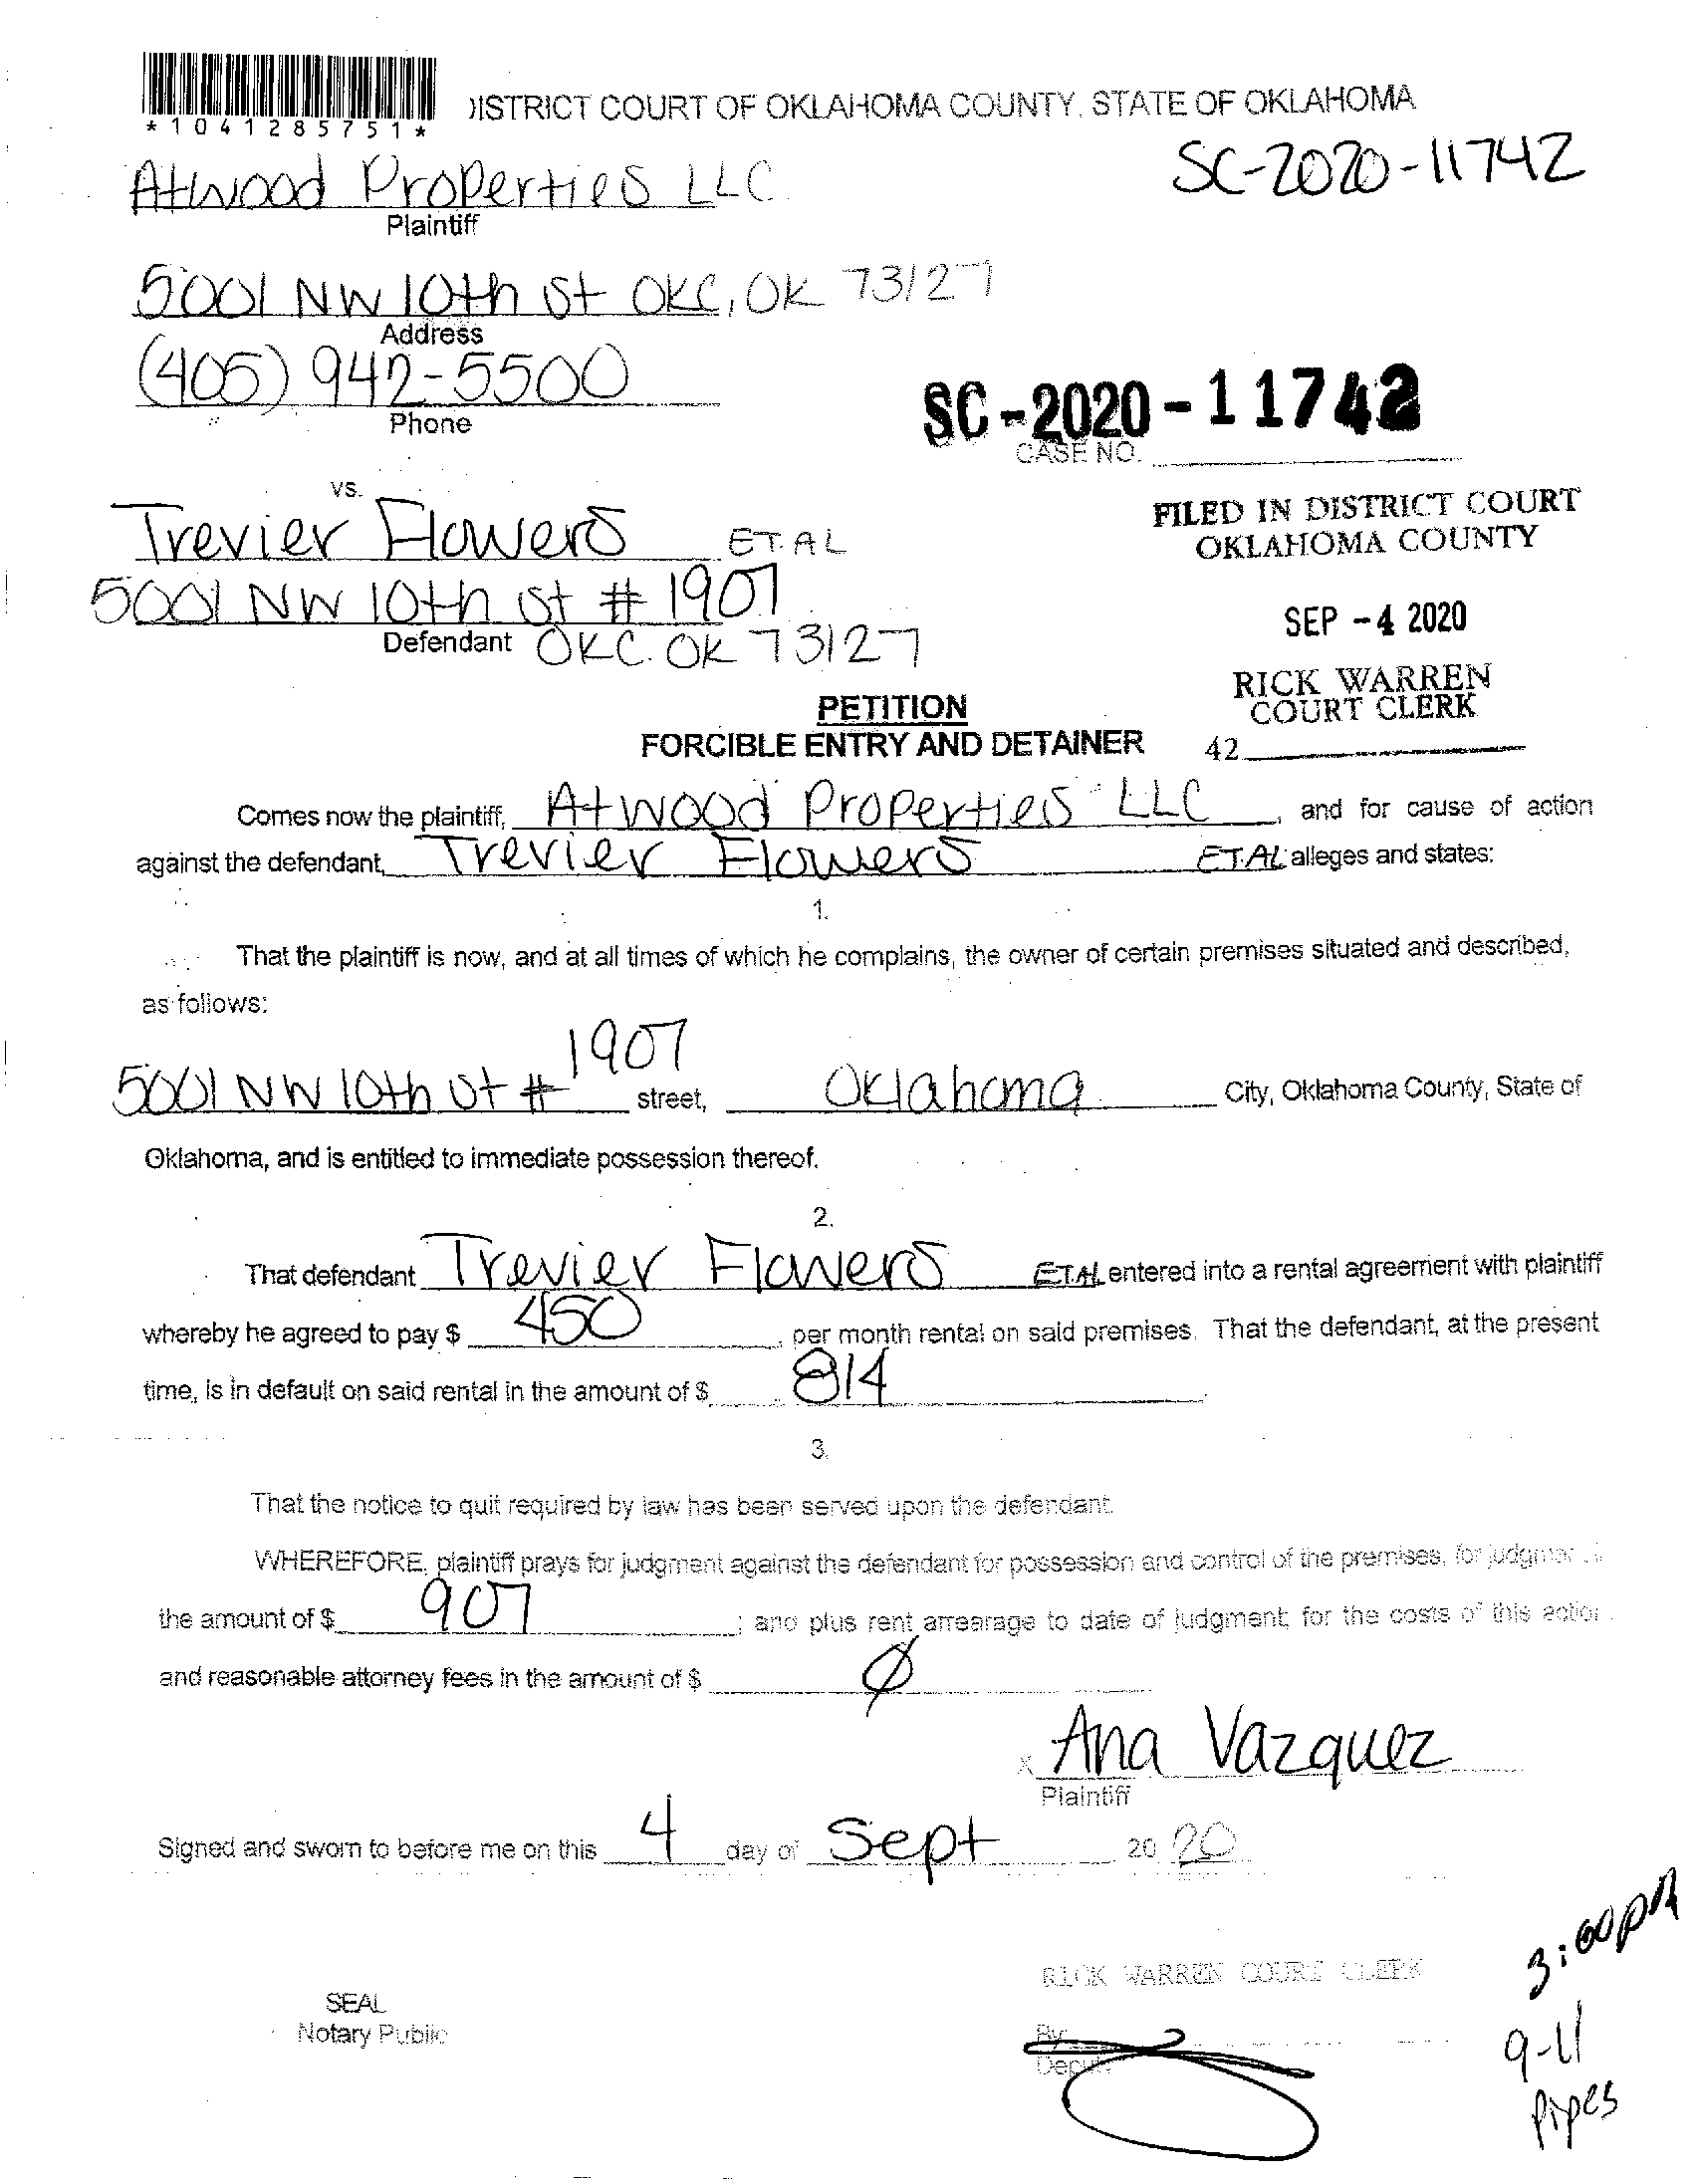 *1041285751*
DISTRICT COURT OF OKLAHOMA COUNTY, STATE OF OKLAHOMA
SC-2020-11742
Atwood Properties LLC
Plaintiff
5001 NW 10th St OKC, OK 73127
Address
(405) 942-5500
Phone
SC-2020-11742
CASE NO.
vs.
FILED IN DISTRICT COURT
OKLAHOMA COUNTY
Trevier Flowers ET. AL
5001 NW 10th St # 1907
SEP -4 2020
Defendant OKC. OK 73127
RICK WARREN
COURT CLERK
42
PETITION
FORCIBLE ENTRY AND DETAINER
Comes now the plaintiff, Atwood Properties LLC, and for cause of action
against the defendant, Trevier Flowers ET.AL alleges and states:
1.
That the plaintiff is now, and at all times of which he complains, the owner of certain premises situated and described,
as follows:
5001 NW 10th St # 1907 street, Oklahoma City, Oklahoma County, State of
Oklahoma, and is entitled to immediate possession thereof.
2.
That defendant Trevier Flowers ET.AL entered into a rental agreement with plaintiff
whereby he agreed to pay $ 450, per month rental on said premises. That the defendant, at the present
time, is in default on said rental in the amount of $ 814
3.
That the notice to quit required by law has been served upon the defendant.
WHEREFORE, plaintiff prays for judgment against the defendant for possession and control of the premises, for
the amount of $ 907; and plus rent arrearage to date of judgment; for the costs of this action
and reasonable attorney fees in the amount of $ Ø
x Ana Vazquez
Plaintiff
Signed and sworn to before me on this 4 day of Sept 2020
3:00pm
RICK WARREN COURT CLERK
SEAL
Notary Public
By
Deputy
9-11
Pipes